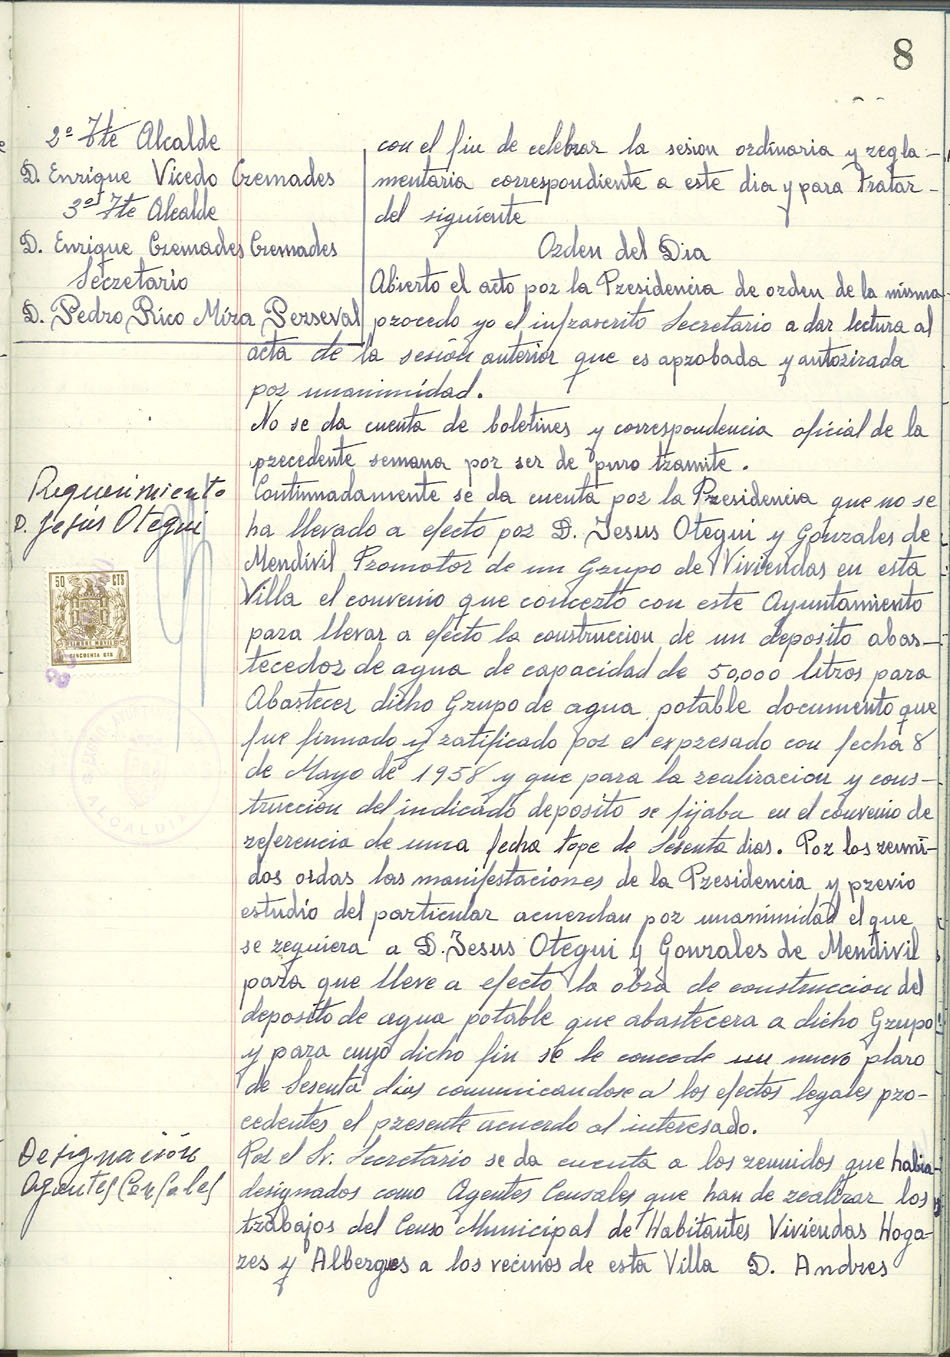 8
2º Tte Alcalde
D. Enrique Vicedo Cremades
3º Tte Alcalde
D. Enrique Cremades Cremades
Secretario
D. Pedro Rico Mira Perseval
con el fin de celebrar la sesion ordinaria y regla-
mentaria correspondiente a este dia y para tratar
del siguiente
Orden del Dia
Abierto el acto por la Presidencia de orden de la misma
procedo yo el infrascrito Secretario a dar lectura al
acta de la sesión anterior que es aprobada y autorizada
por unanimidad.
No se da cuenta de boletines y correspondencia oficial de la
precedente semana por ser de puro tramite.
Requerimiento
D. Jesús Otegui
Continuadamente se da cuenta por la Presidencia que no se
ha llevado a efecto por D. Jesus Otegui y Gonzales de
Mendivil Promotor de un Grupo de Viviendas en esta
Villa el convenio que concerto con este Ayuntamiento
para llevar a efecto la construccion de un deposito abas-
tecedor de agua de capacidad de 50,000 litros para
Abastecer dicho Grupo de agua potable documento que
fue firmado y ratificado por el expresado con fecha 8
de Mayo de 1958 y que para la realizacion y cons-
truccion del indicado deposito se fijaba en el convenio de
referencia de una fecha tope de Sesenta dias. Por los reuni-
dos oidas las manifestaciones de la Presidencia y previo
estudio del particular acuerdan por unanimidad el que
se requiera a D. Jesus Otegui y Gonzales de Mendivil
para que lleve a efecto la obra de construccion del
deposito de agua potable que abastecera a dicho Grupo
y para cuyo dicho fin se le concede un nuevo plazo
de Sesenta dias comunicandose a los efectos legales pro-
cedentes el presente acuerdo al interesado.
50 CTS
CINCUENTA CTS
ALCALDIA
Designación
Agentes Censales
Por el Sr. Secretario se da cuenta a los reunidos que habia
designados como Agentes Censales que han de realizar los
trabajos del Censo Municipal de Habitantes Viviendas Hoga-
res y Albergues a los vecinos de esta Villa D. Andres